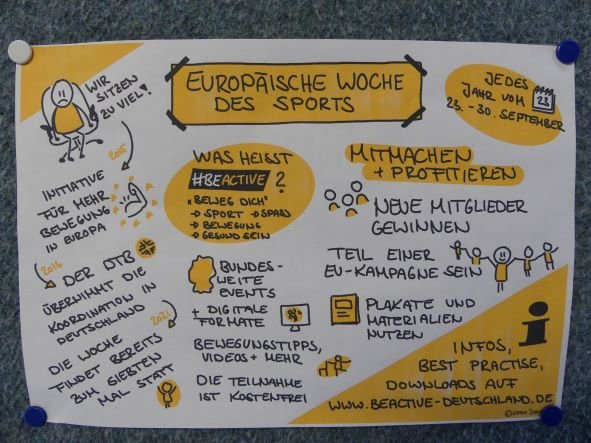 EUROPÄISCHE WOCHE
DES SPORTS
JEDES
JAHR VOM
23
23.-30. SEPTEMBER
WIR
SITZEN
ZU VIEL!
2015
INITIATIVE
FÜR MEHR
BEWEGUNG
IN EUROPA
2016
DER DTB
ÜBERNIMMT DIE
KOORDINATION IN
DEUTSCHLAND
2021
DIE WOCHE
FINDET BEREITS
ZUM SIEBTEN
MAL STATT
WAS HEISST
#BEACTIVE ?
„BEWEG DICH"
→ SPORT → SPASS
→ BEWEGUNG
→ GESUND SEIN
BUNDES-
WEITE
EVENTS
+ DIGITALE
FORMATE
BEWEGUNGSTIPPS,
VIDEOS + MEHR
DIE TEILNAHME
IST KOSTENFREI
MITMACHEN
+ PROFITIEREN
NEUE MITGLIEDER
GEWINNEN
TEIL EINER
EU-KAMPAGNE SEIN
PLAKATE UND
MATERIALIEN
NUTZEN
i
INFOS,
BEST PRACTISE,
DOWNLOADS AUF
WWW.BEACTIVE-DEUTSCHLAND.DE